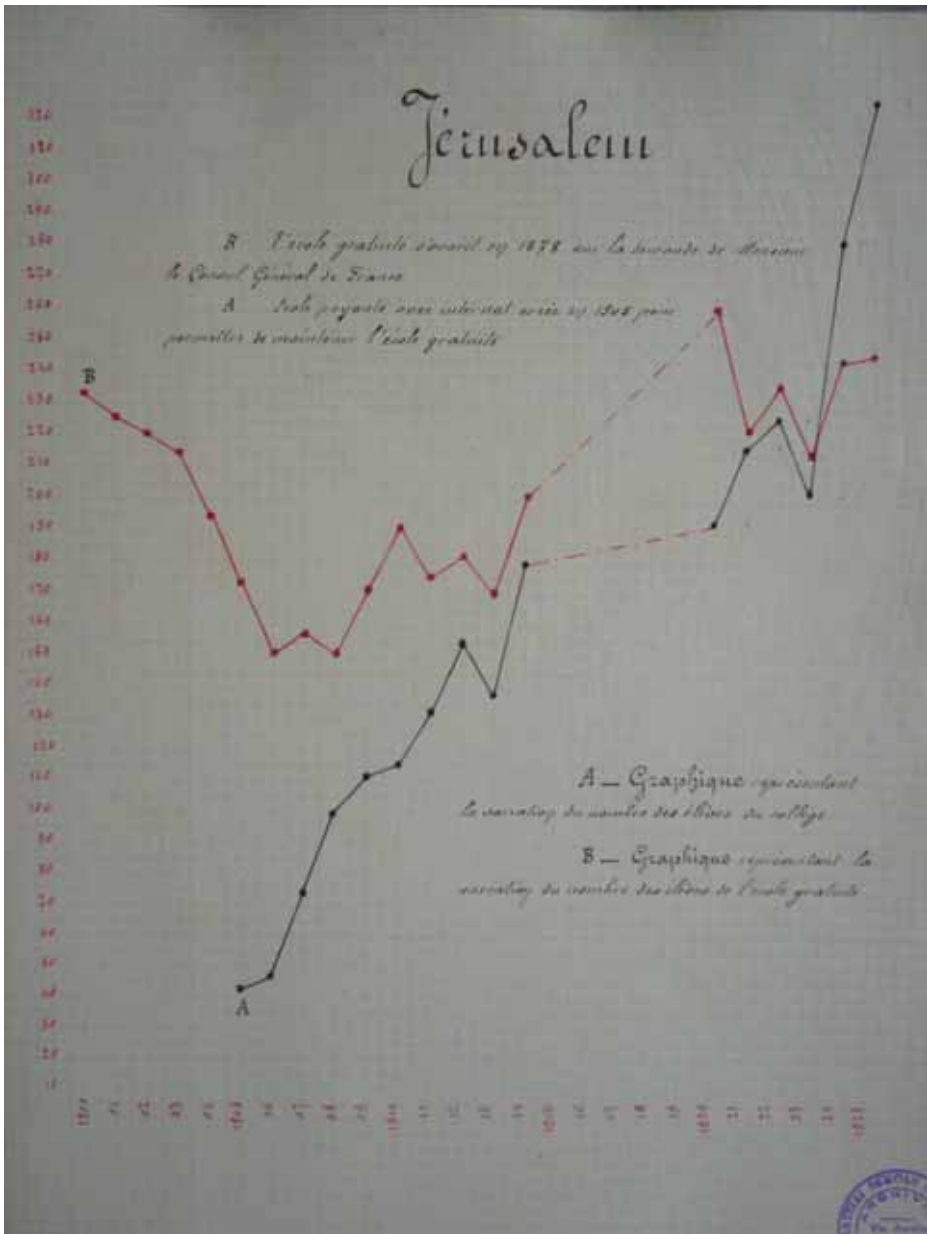 Jérusalem
B L'école gratuite s'ouvrit en 1878 sur la demande de Monsieur
le Consul Général de France
A École payante avec internat créée en 1905 pour
permettre de maintenir l'école gratuite
B
A
A — Graphique représentant
la variation du nombre des élèves du collège
B — Graphique représentant la
variation du nombre des élèves de l'école gratuite
300
290
280
270
260
250
240
230
220
210
200
190
180
170
160
150
130
120
110
100
90
80
70
60
50
40
30
20
10
07
08
09
11
12
17
18
19
21
22
23
24